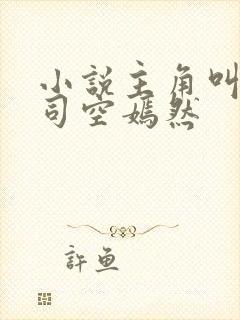 小説主角叫
司空嫣然
許魚